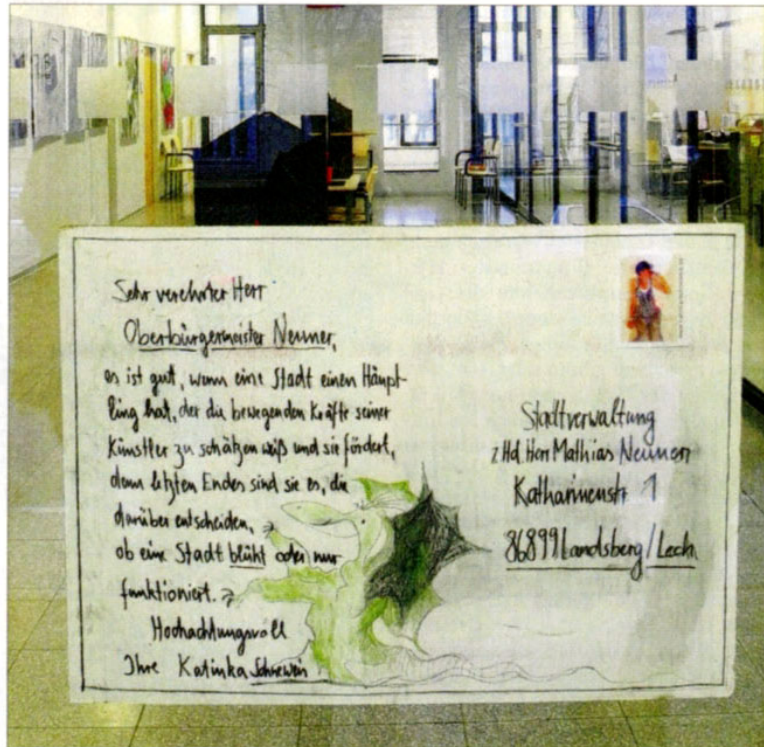 Sehr verehrter Herr
Oberbürgermeister Neuner,
es ist gut, wenn eine Stadt einen Häupt-
ling hat, der die bewegenden Kräfte seiner
Künstler zu schätzen weiß und sie fördert,
denn letzten Endes sind sie es, die
darüber entscheiden,
ob eine Stadt blüht oder nur
funktioniert.
Hochachtungsvoll
Ihre Katinka Schneewein
Stadtverwaltung
z Hd. Herr Mathias Neuner
Katharinenstr 1
86899 Landsberg/Lech